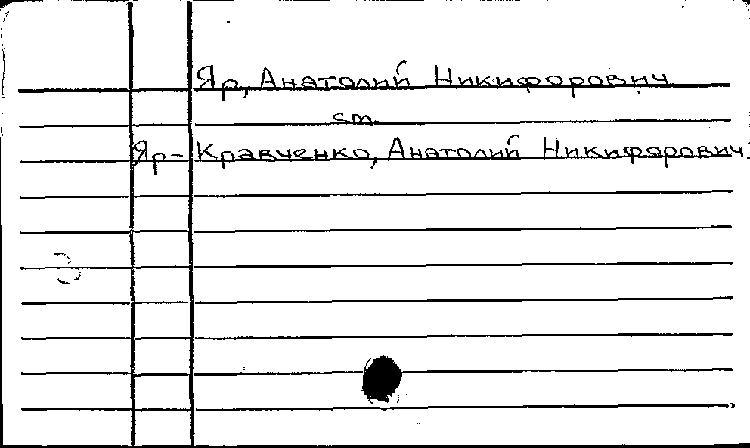 Яр, Анатолий Никифорович
ст.
Яр-Кравченко, Анатолий Никифорович.